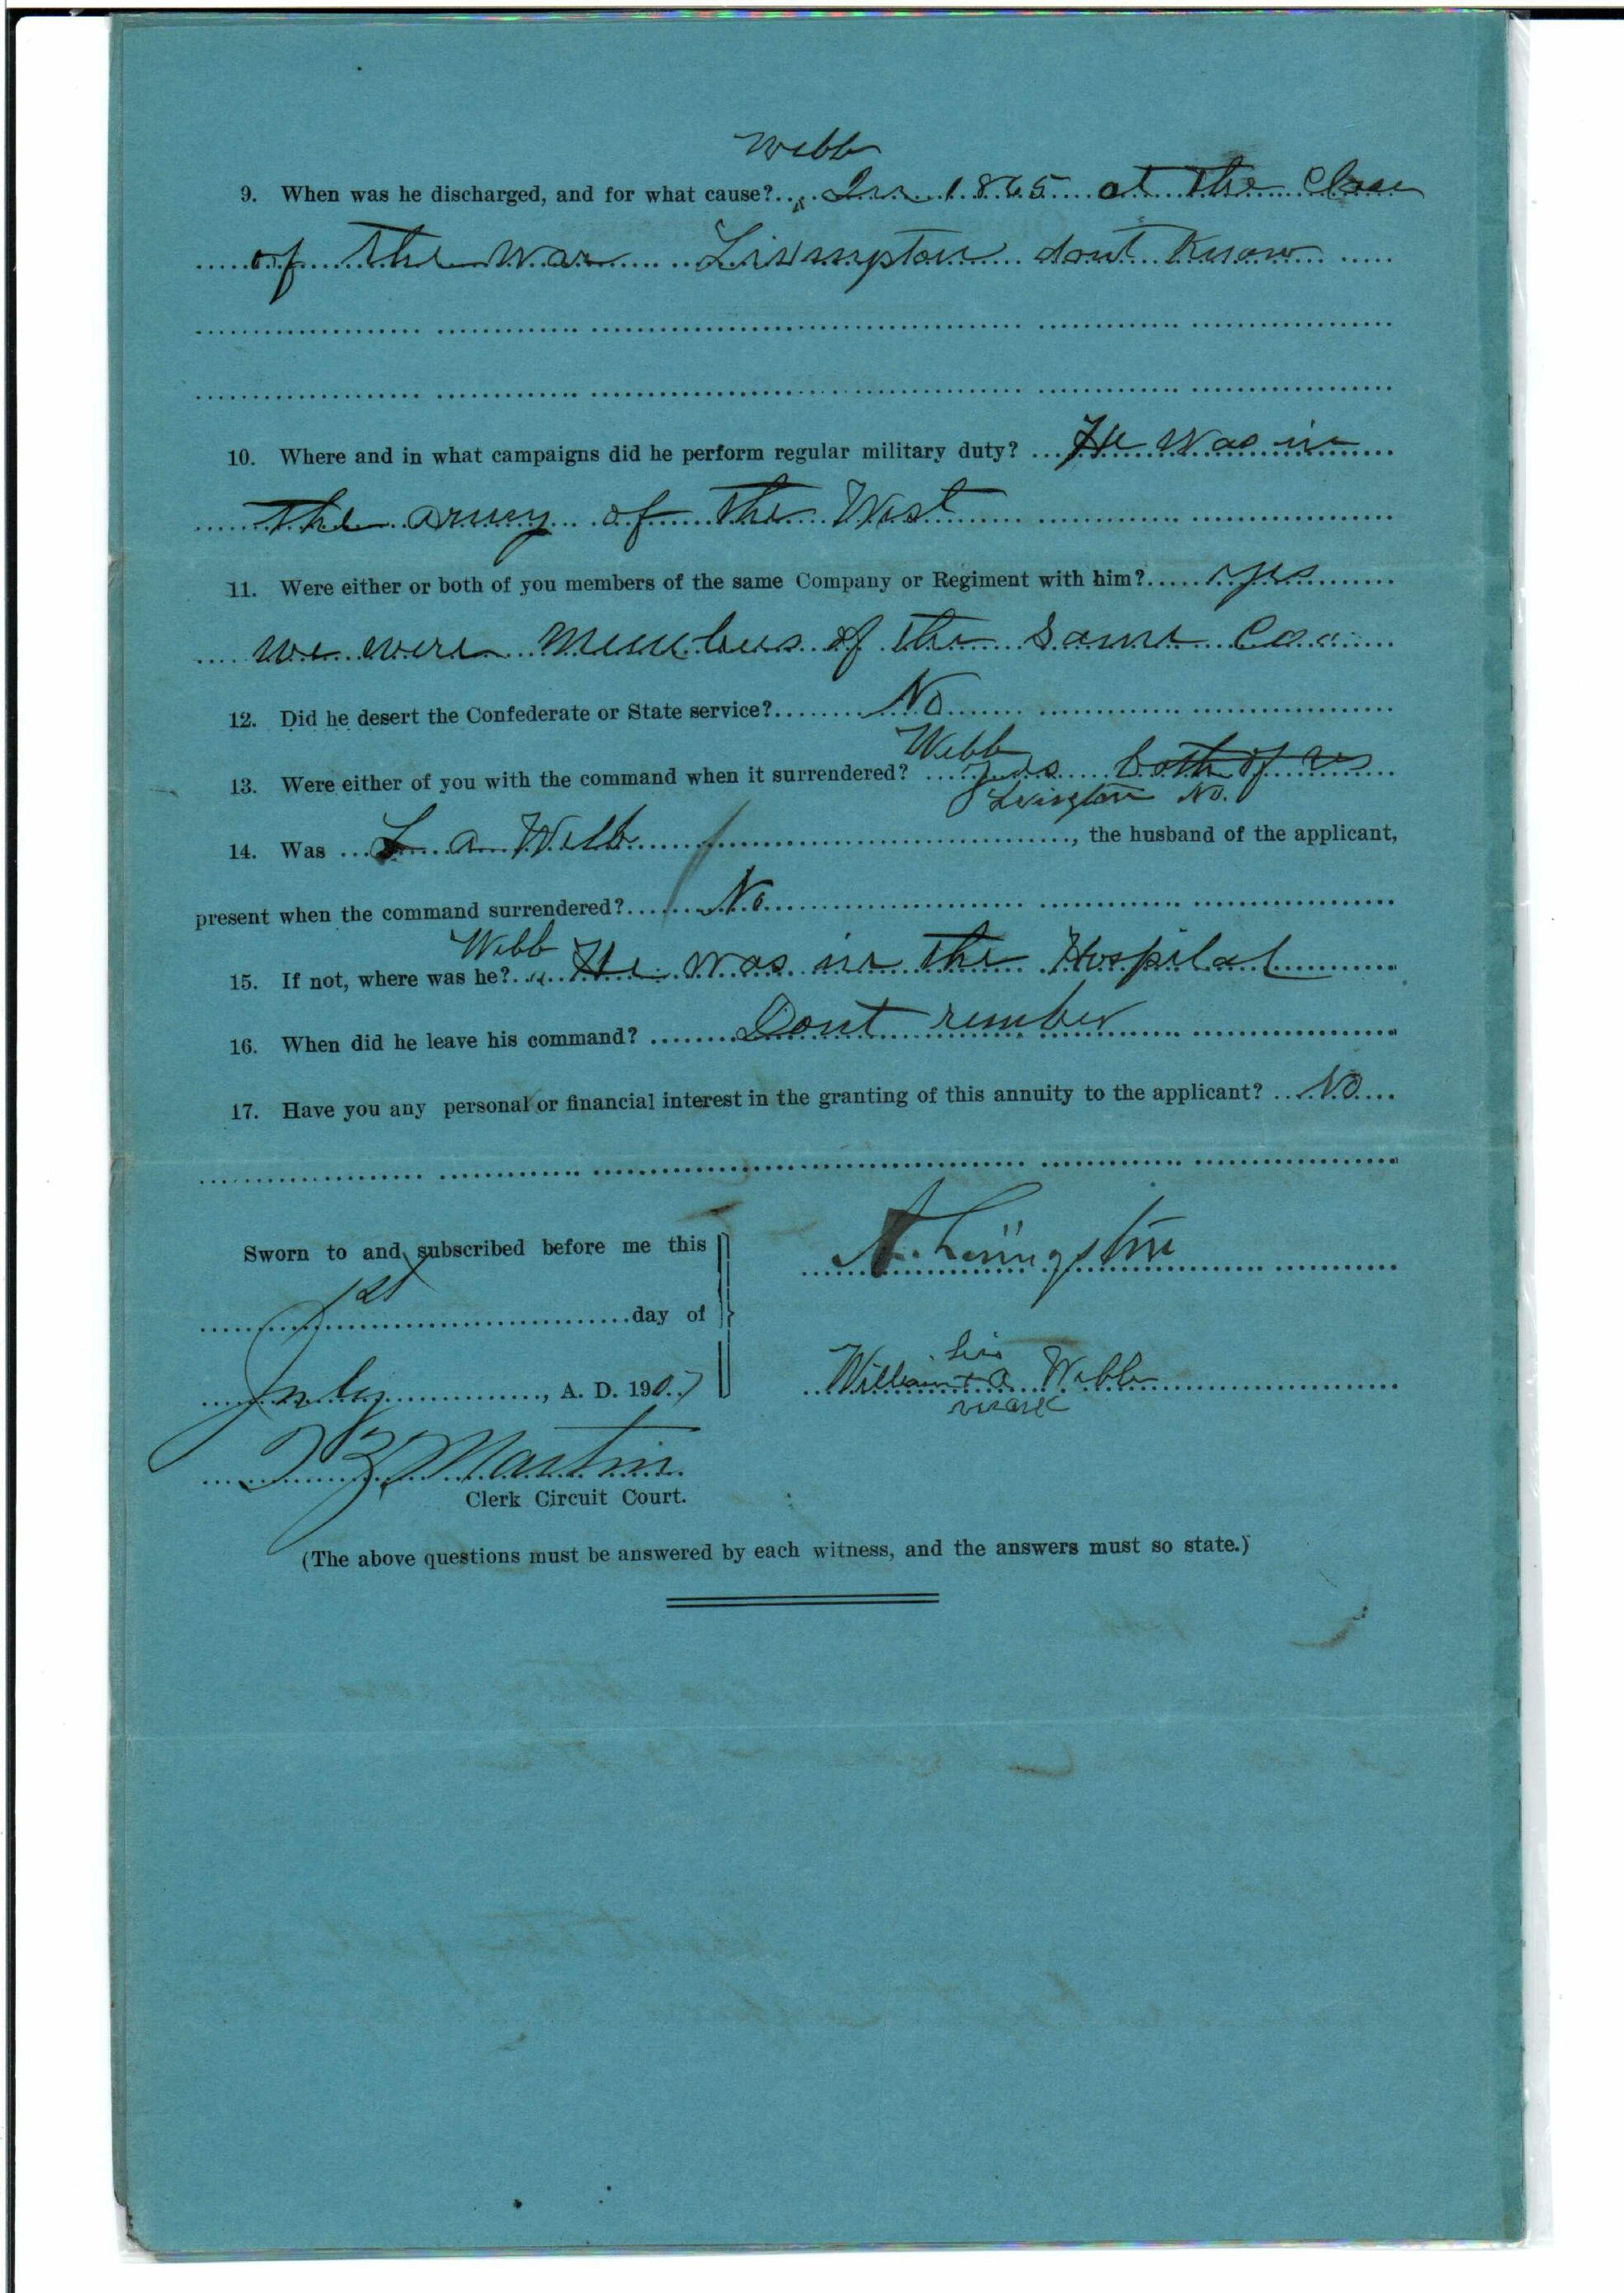 Webb
9. When was he discharged, and for what cause? In 1865 at the Close
of the War Livingston dont Know
10. Where and in what campaigns did he perform regular military duty? He was in
the army of the West
11. Were either or both of you members of the same Company or Regiment with him? yes
we were Members of the Same Co
12. Did he desert the Confederate or State service? No
Webb
13. Were either of you with the command when it surrendered? yes both of us
Livingston No.
14. Was L a Webb, the husband of the applicant,
present when the command surrendered? No
Webb
15. If not, where was he? He was in the Hospital
16. When did he leave his command? Dont rember
17. Have you any personal or financial interest in the granting of this annuity to the applicant? No
Sworn to and subscribed before me this
A. Livingston
1st day of
his
July, A. D. 1907
William + a Webb
mark
Martin
Clerk Circuit Court.
(The above questions must be answered by each witness, and the answers must so state.)